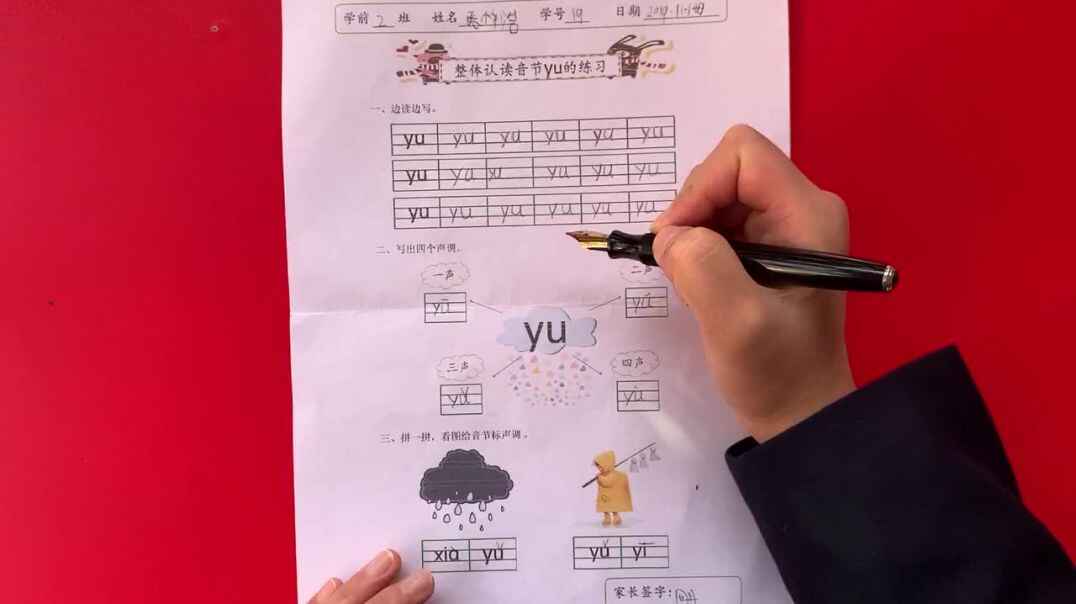 学前 2 班 姓名 学号 19 日期
整体认读音节yu的练习
一、边读边写。
yu yu yu yu yu yu
yu yu yu yu yu yu
yu yu yu yu yu yu
二、写出四个声调。
一声 二声
yū yú
yu
三声 四声
yǔ yù
三、拼一拼，看图给音节标声调。
xià yǔ yǔ yī
家长签字：